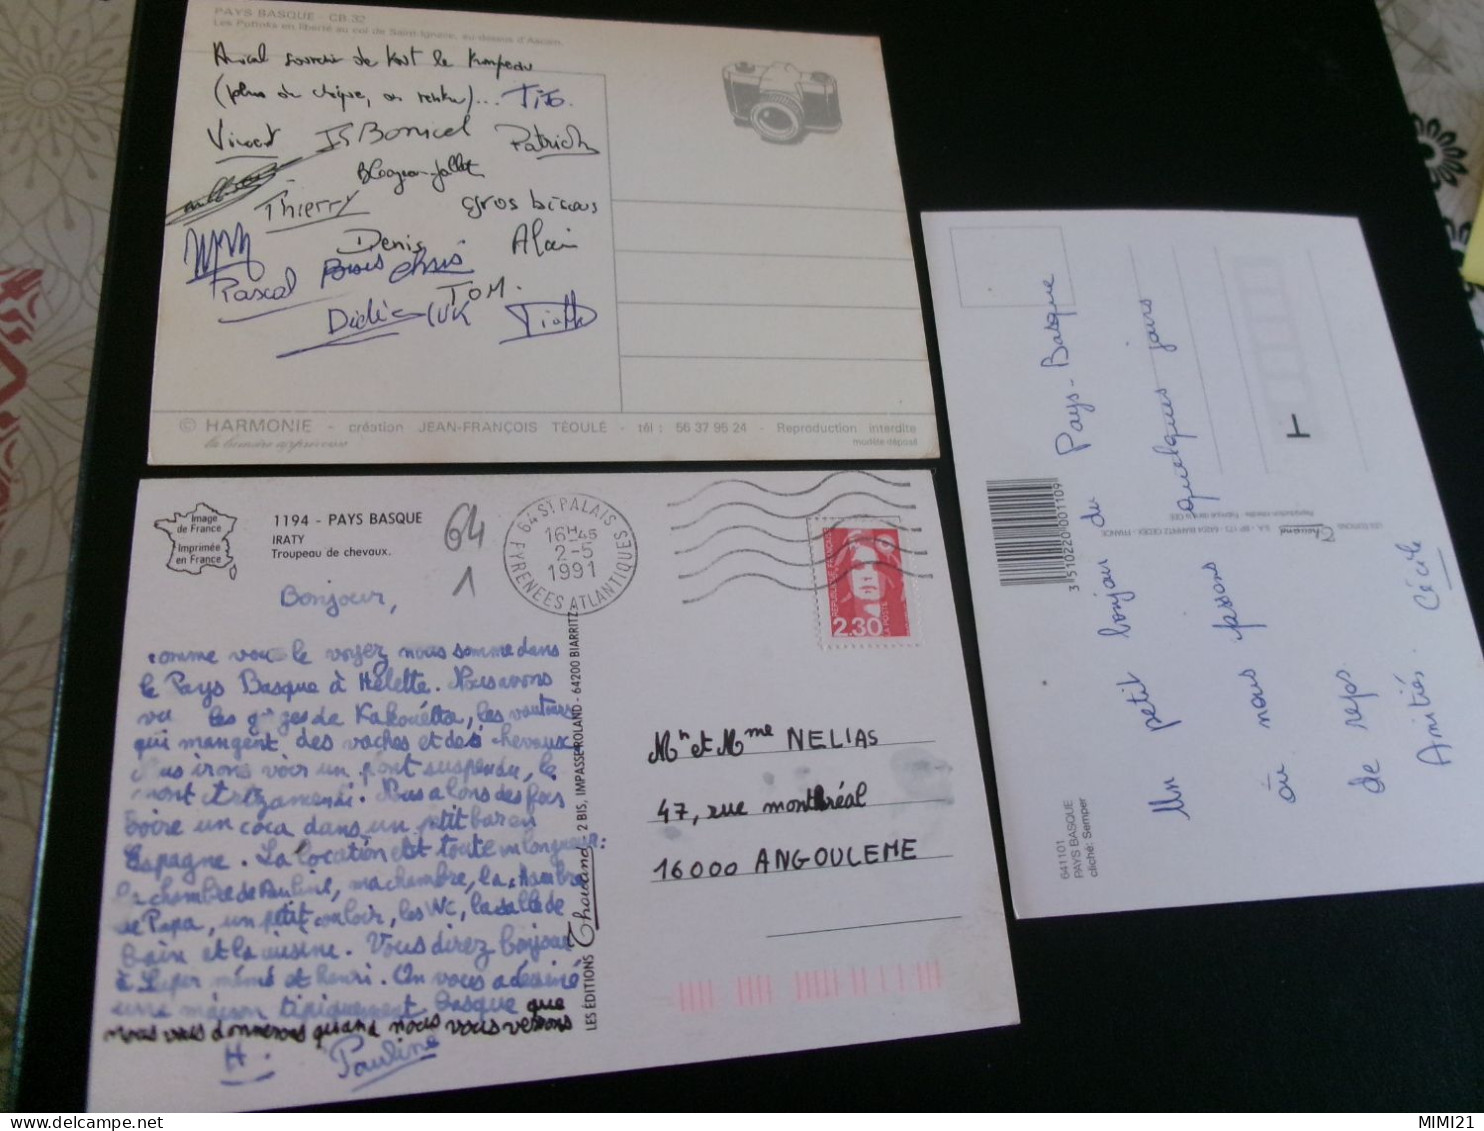 PAYS BASQUE - CB.32
Les Pottoks en liberté au col de Saint-Ignace, au-dessus d'Ascain.
Amical souvenir de
(plus de chique, on rentre)... TiTo.
Vincent
Bonicel
Patrick
Thierry
gros bisous
Denis
Alain
Pascal
Chris
TOM.
Didier
© HARMONIE - création JEAN-FRANÇOIS TÉOULÉ - tél : 56 37 95 24 - Reproduction interdite
modèle déposé
Image
de France
Imprimée
en France
1194 - PAYS BASQUE
IRATY
Troupeau de chevaux.
64
1
64 ST PALAIS
16H45
2-5
1991
PYRENEES ATLANTIQUES
REPUBLIQUE FRANÇAISE
2.30
LA POSTE
Bonjour,
comme vous le voyez nous somme dans
le Pays Basque à Hélette. Nous avons
vu les gorges de Kakouétta, les vautours
qui mangent des vaches et des chevaux.
Nous irons voir un pont suspendu, le
mont Artzamendi. Nous alons des fois
boire un coca dans un petit bar en
Espagne. La location est toute en longueur:
la chambre de Pauline, ma chambre, la chambre
de Papa, un petit couloir, les WC, la salle de
bain et la cuisine. Vous direz bonjour
à Super mémé et henri. On vous a déssiné
une maison tipiquement basque que
nous vous donnerons quand nous vous verrons
H. Pauline
LES ÉDITIONS Thouand 2 BIS, IMPASSE ROLAND - 64200 BIARRITZ
Mr et Mme NELIAS
47, rue montréal
16000 ANGOULEME
Un petit bonjour du Pays-Basque
où nous passons quelques jours
de repos.
Amitiés. Cécile
3 510220 001109
641101
PAYS BASQUE
cliché: Semper
MIMI21